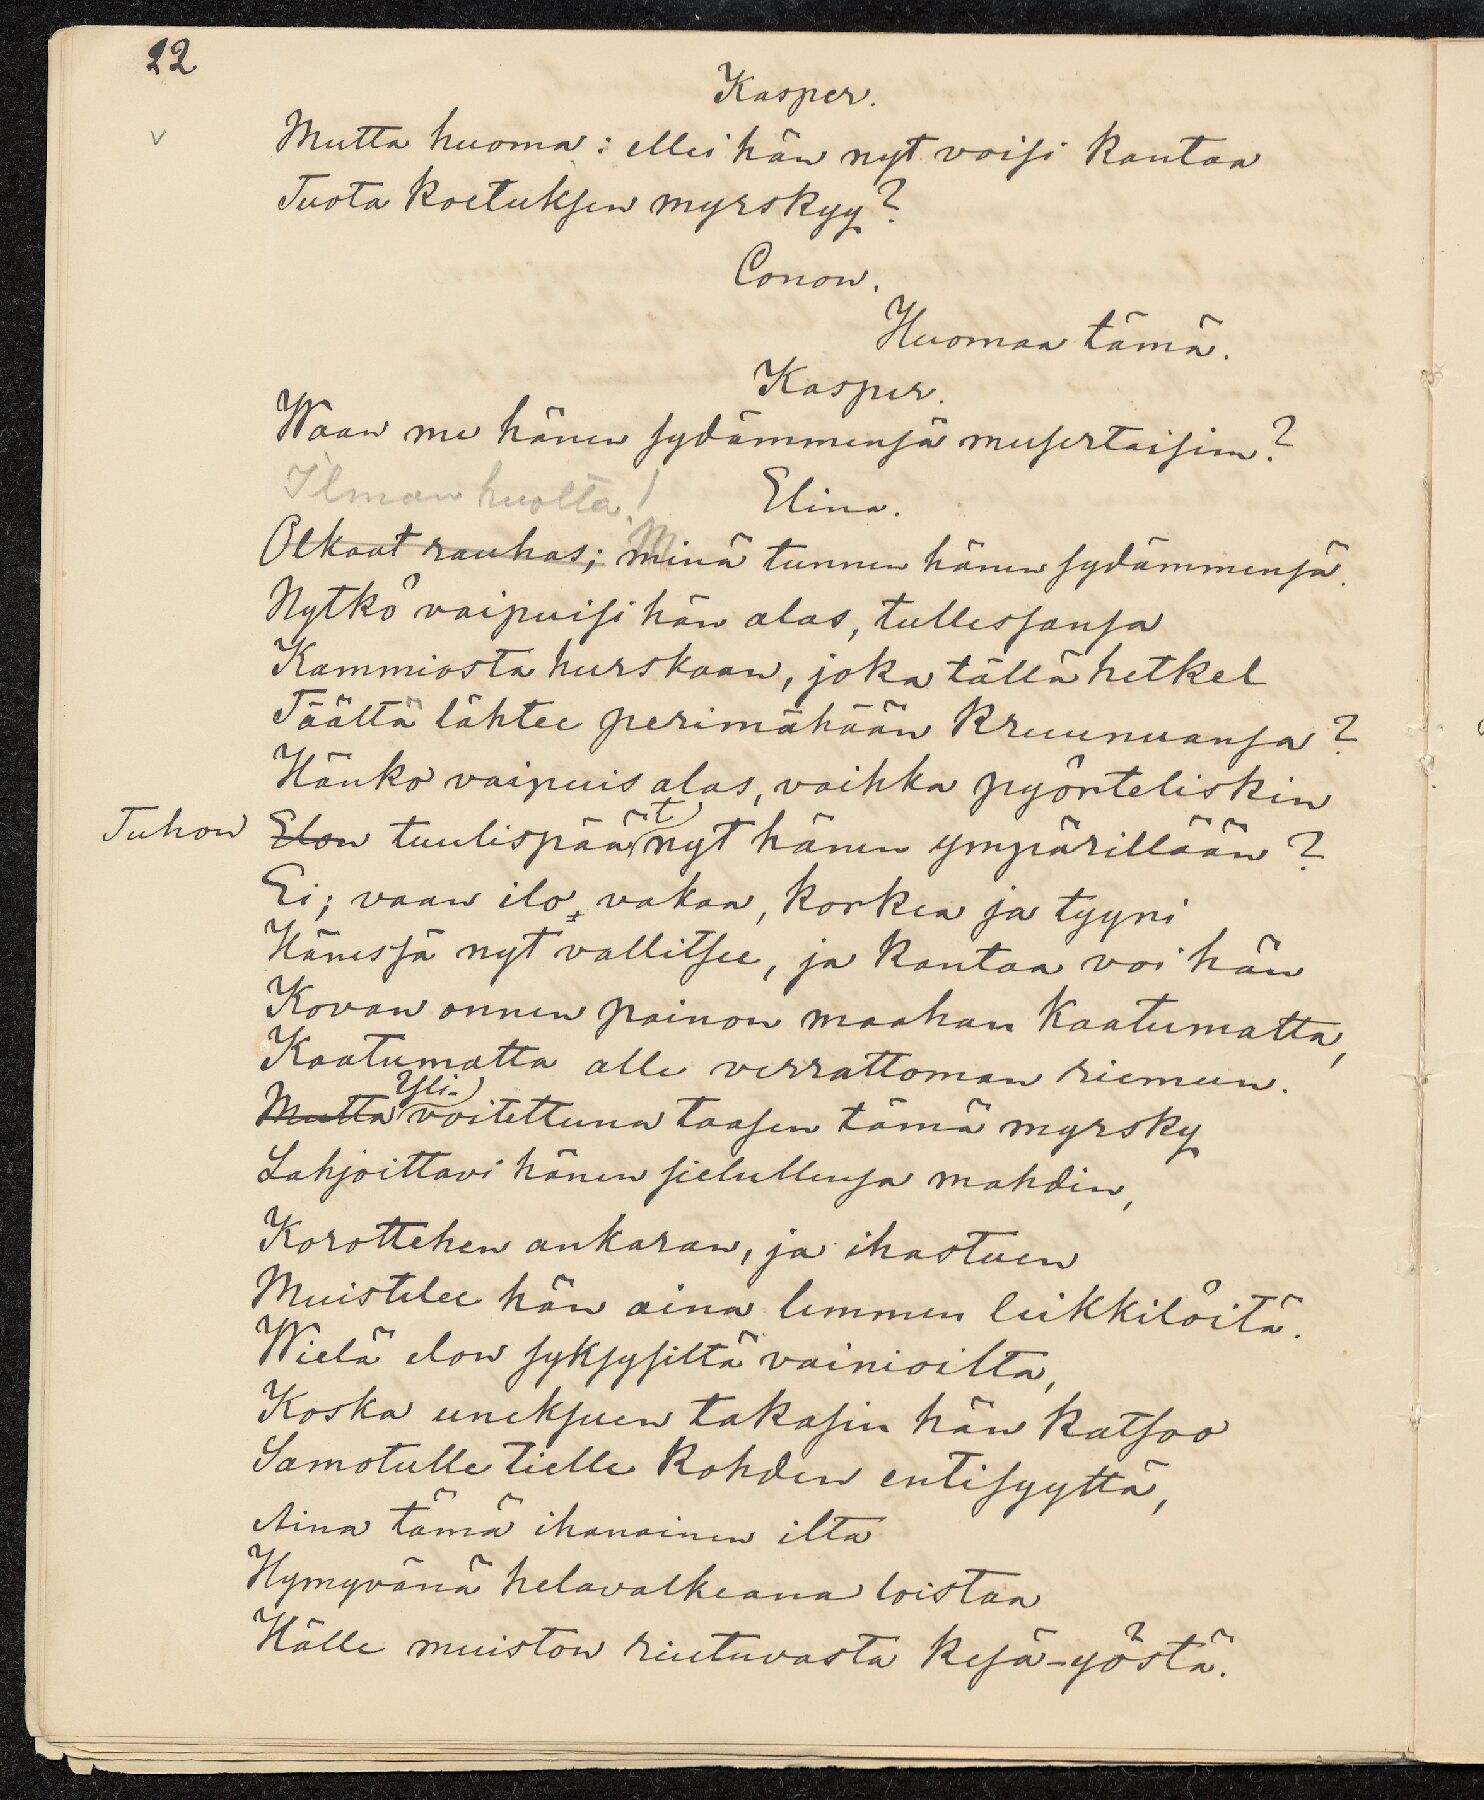 22
Kasper.
Mutta huoma: ellei hän nyt voisi kantaa
Tuota koetuksen myrskyy?
Conon.
Huomaa tämä.
Kasper.
Waan me hänen sydämmensä musertaisim?
Ilman huolta!
Elina.
Olkaat rauhas; Minä tunnen hänen sydämmensä.
Nytkö vaipuisi hän alas, tullessansa
Kammiosta hurskaan, joka tällä hetkel
Täältä lähtee perimähään kruunuansa?
Hänkö vaipuis alas, vaihka pyörteliskin
Tuhon Elon tuulispäät nyt hänen ympärillään?
Ei; vaan ilo, vakaa, korkea ja tyyni
Hänessä nyt vallitsee, ja kantaa voi hän
Kovan onnen painon maahan kaatumatta,
Kaatumatta alle verrattoman riemun.
Mutta Yli-voitettuna taasen tämä myrsky
Lahjoittavi hänen sielullensa mahdin,
Korottehen ankaran, ja ihastuen
Muistelee hän aina lemmen leikkilöitä.
Wielä elon syksysiltä vainioilta,
Koska uneksuen takasin hän katsoo
Samotulle tielle kohden entisyyttä,
Aina tämä ihanainen ilta
Hymyvänä helavalkeana loistaa
Hälle muiston riutuvasta kesä-yöstä.